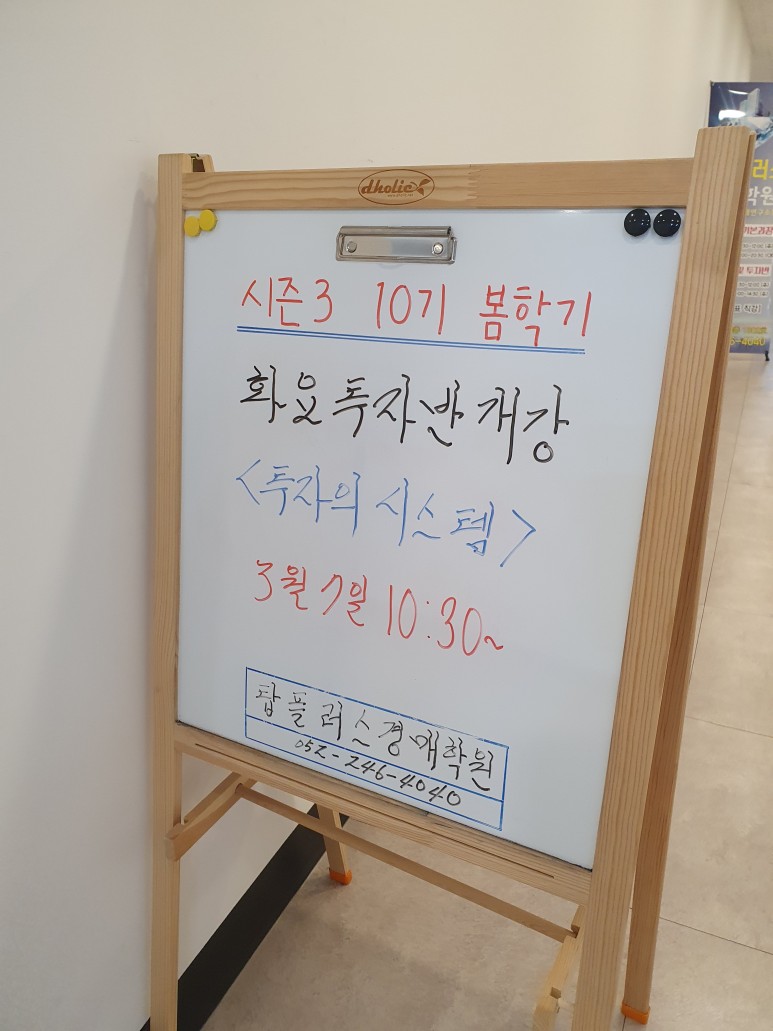 dholic
시즌3 10기 봄학기
화요투자반개강
<투자의 시스템>
3월 7일 10:30~
탑플러스경매학원
052-246-4040
러스
학원
기본과정